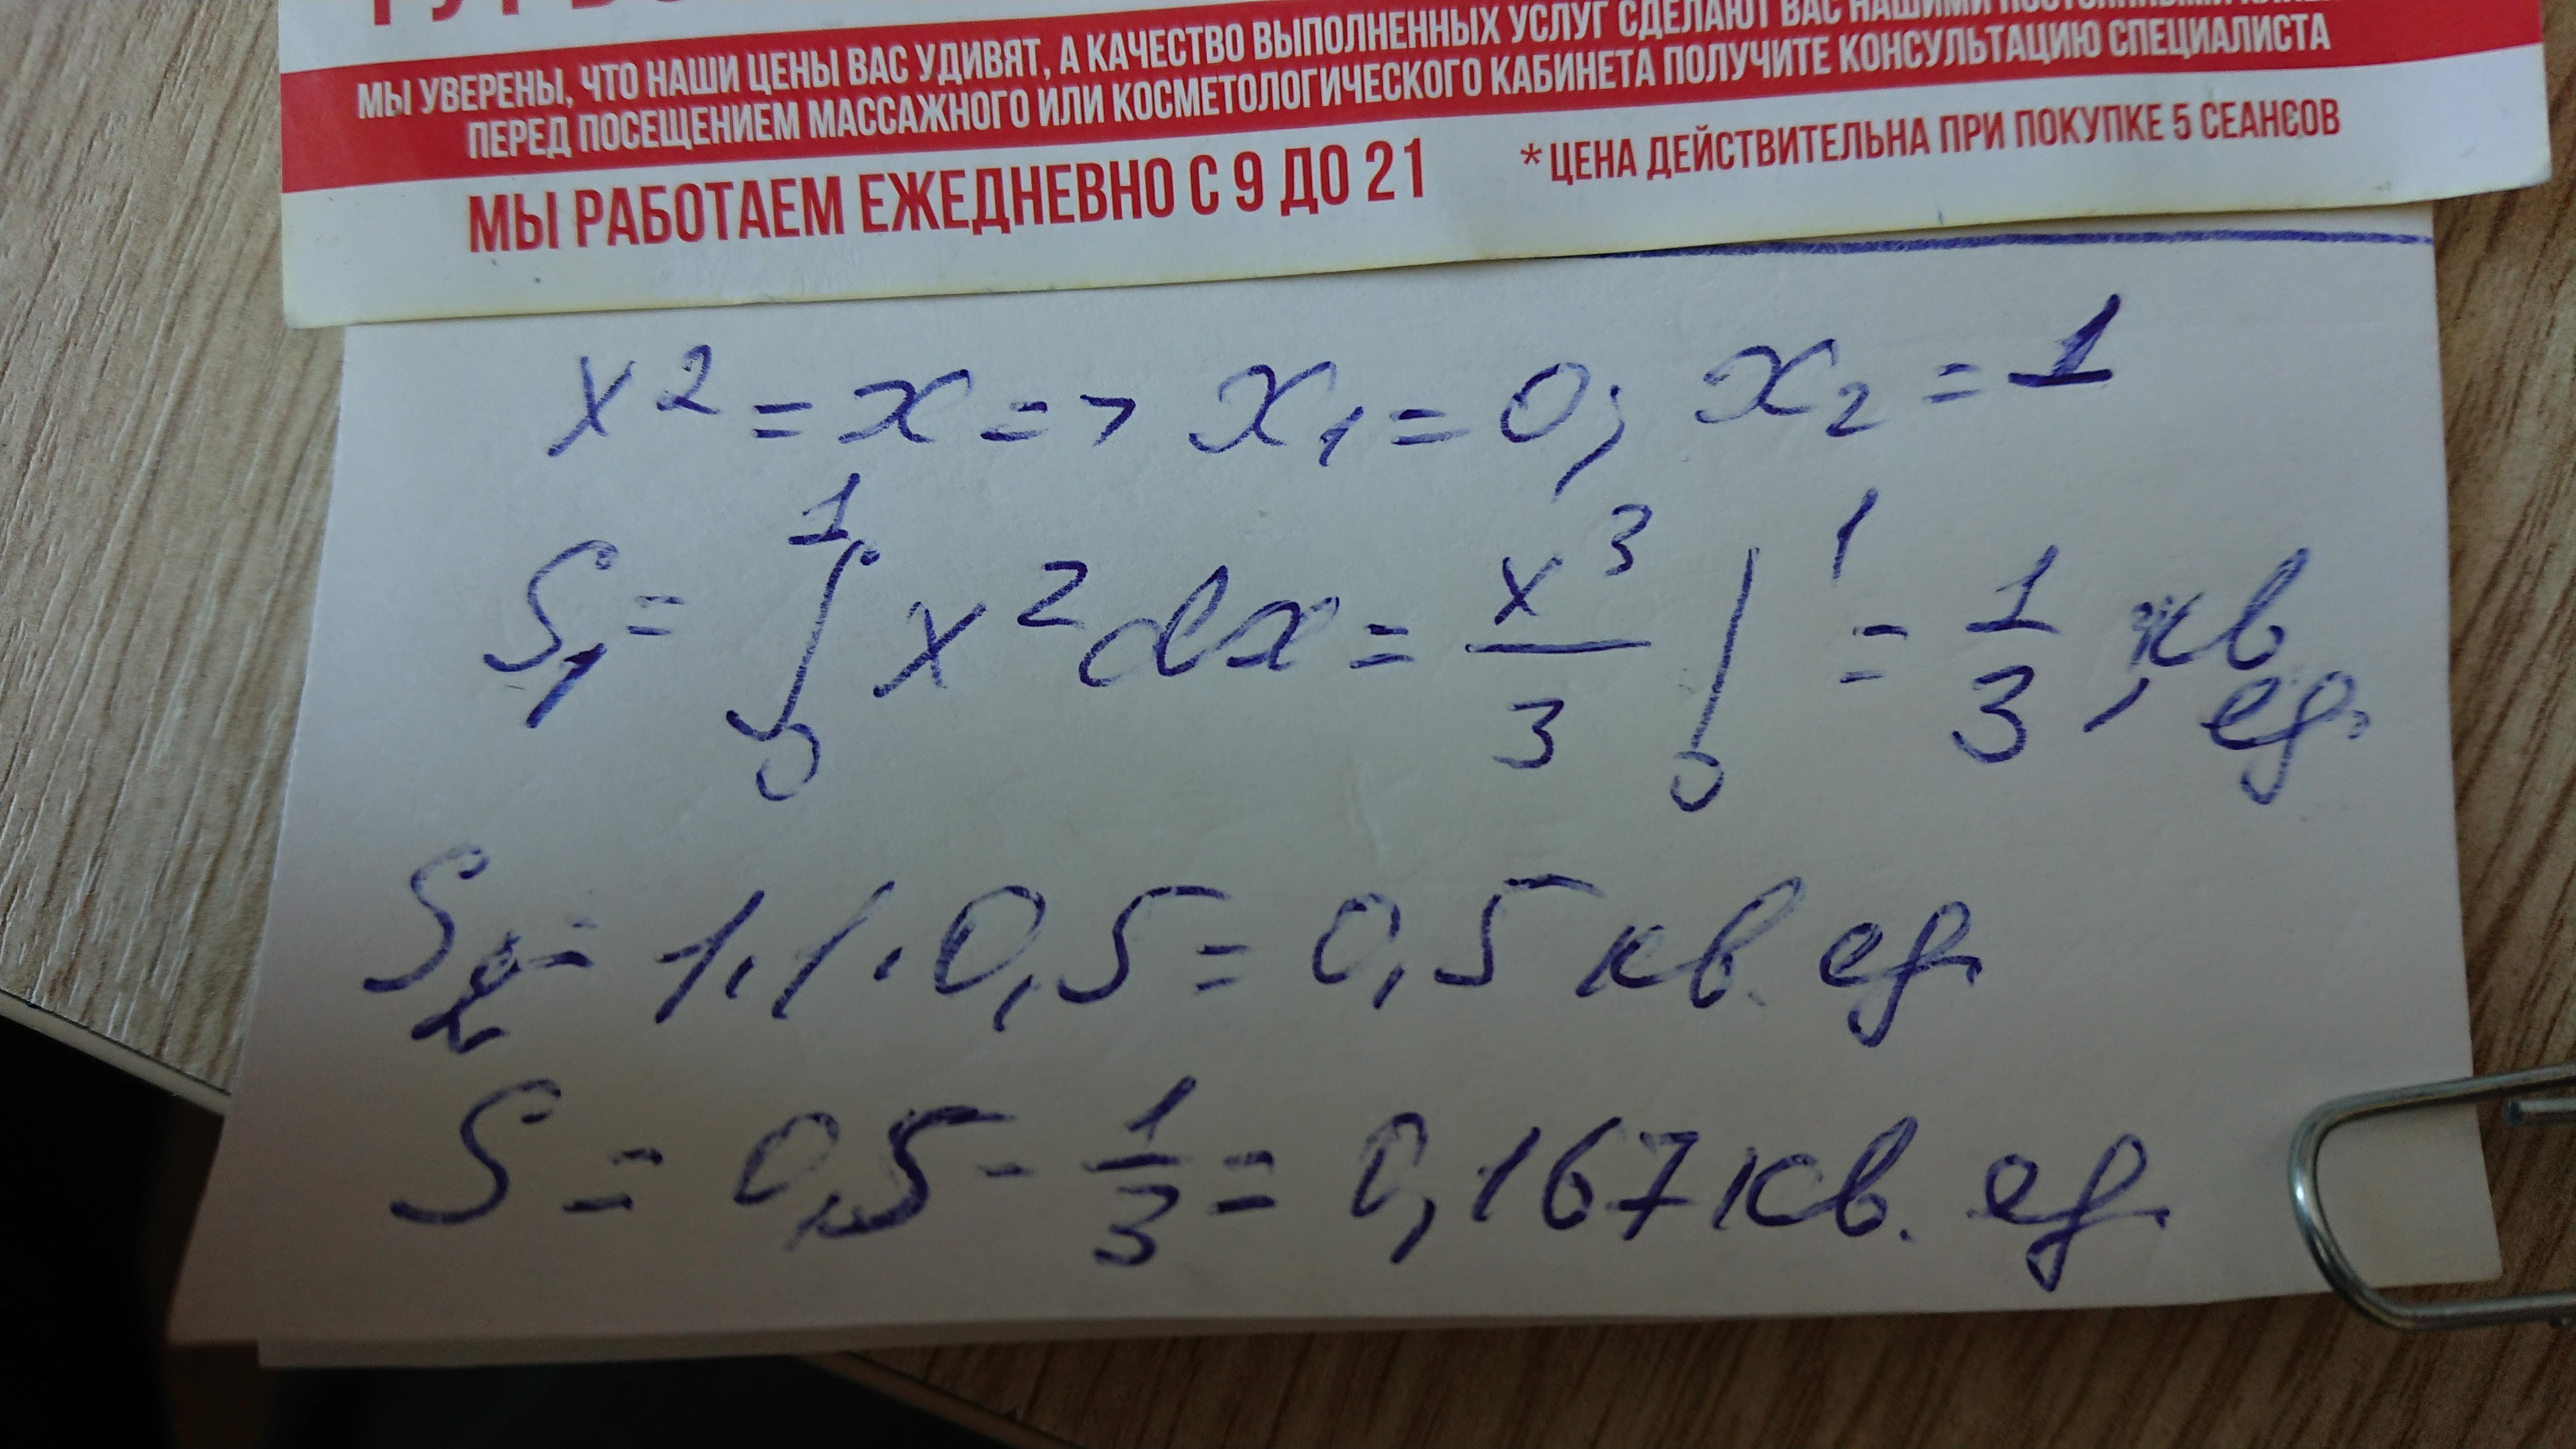 МЫ УВЕРЕНЫ, ЧТО НАШИ ЦЕНЫ ВАС УДИВЯТ, А КАЧЕСТВО ВЫПОЛНЕННЫХ УСЛУГ СДЕЛАЮТ ВАС НАШИМИ
ПЕРЕД ПОСЕЩЕНИЕМ МАССАЖНОГО ИЛИ КОСМЕТОЛОГИЧЕСКОГО КАБИНЕТА ПОЛУЧИТЕ КОНСУЛЬТАЦИЮ СПЕЦИАЛИСТА
МЫ РАБОТАЕМ ЕЖЕДНЕВНО С 9 ДО 21 *ЦЕНА ДЕЙСТВИТЕЛЬНА ПРИ ПОКУПКЕ 5 СЕАНСОВ
x² = x => x₁ = 0; x₂ = 1
S₁ = ∫₀¹ x² dx = x³/3 |₀¹ = 1/3, кв ед.
S₂ = 1·1·0,5 = 0,5 кв. ед.
S = 0,5 - 1/3 = 0,167 кв. ед.